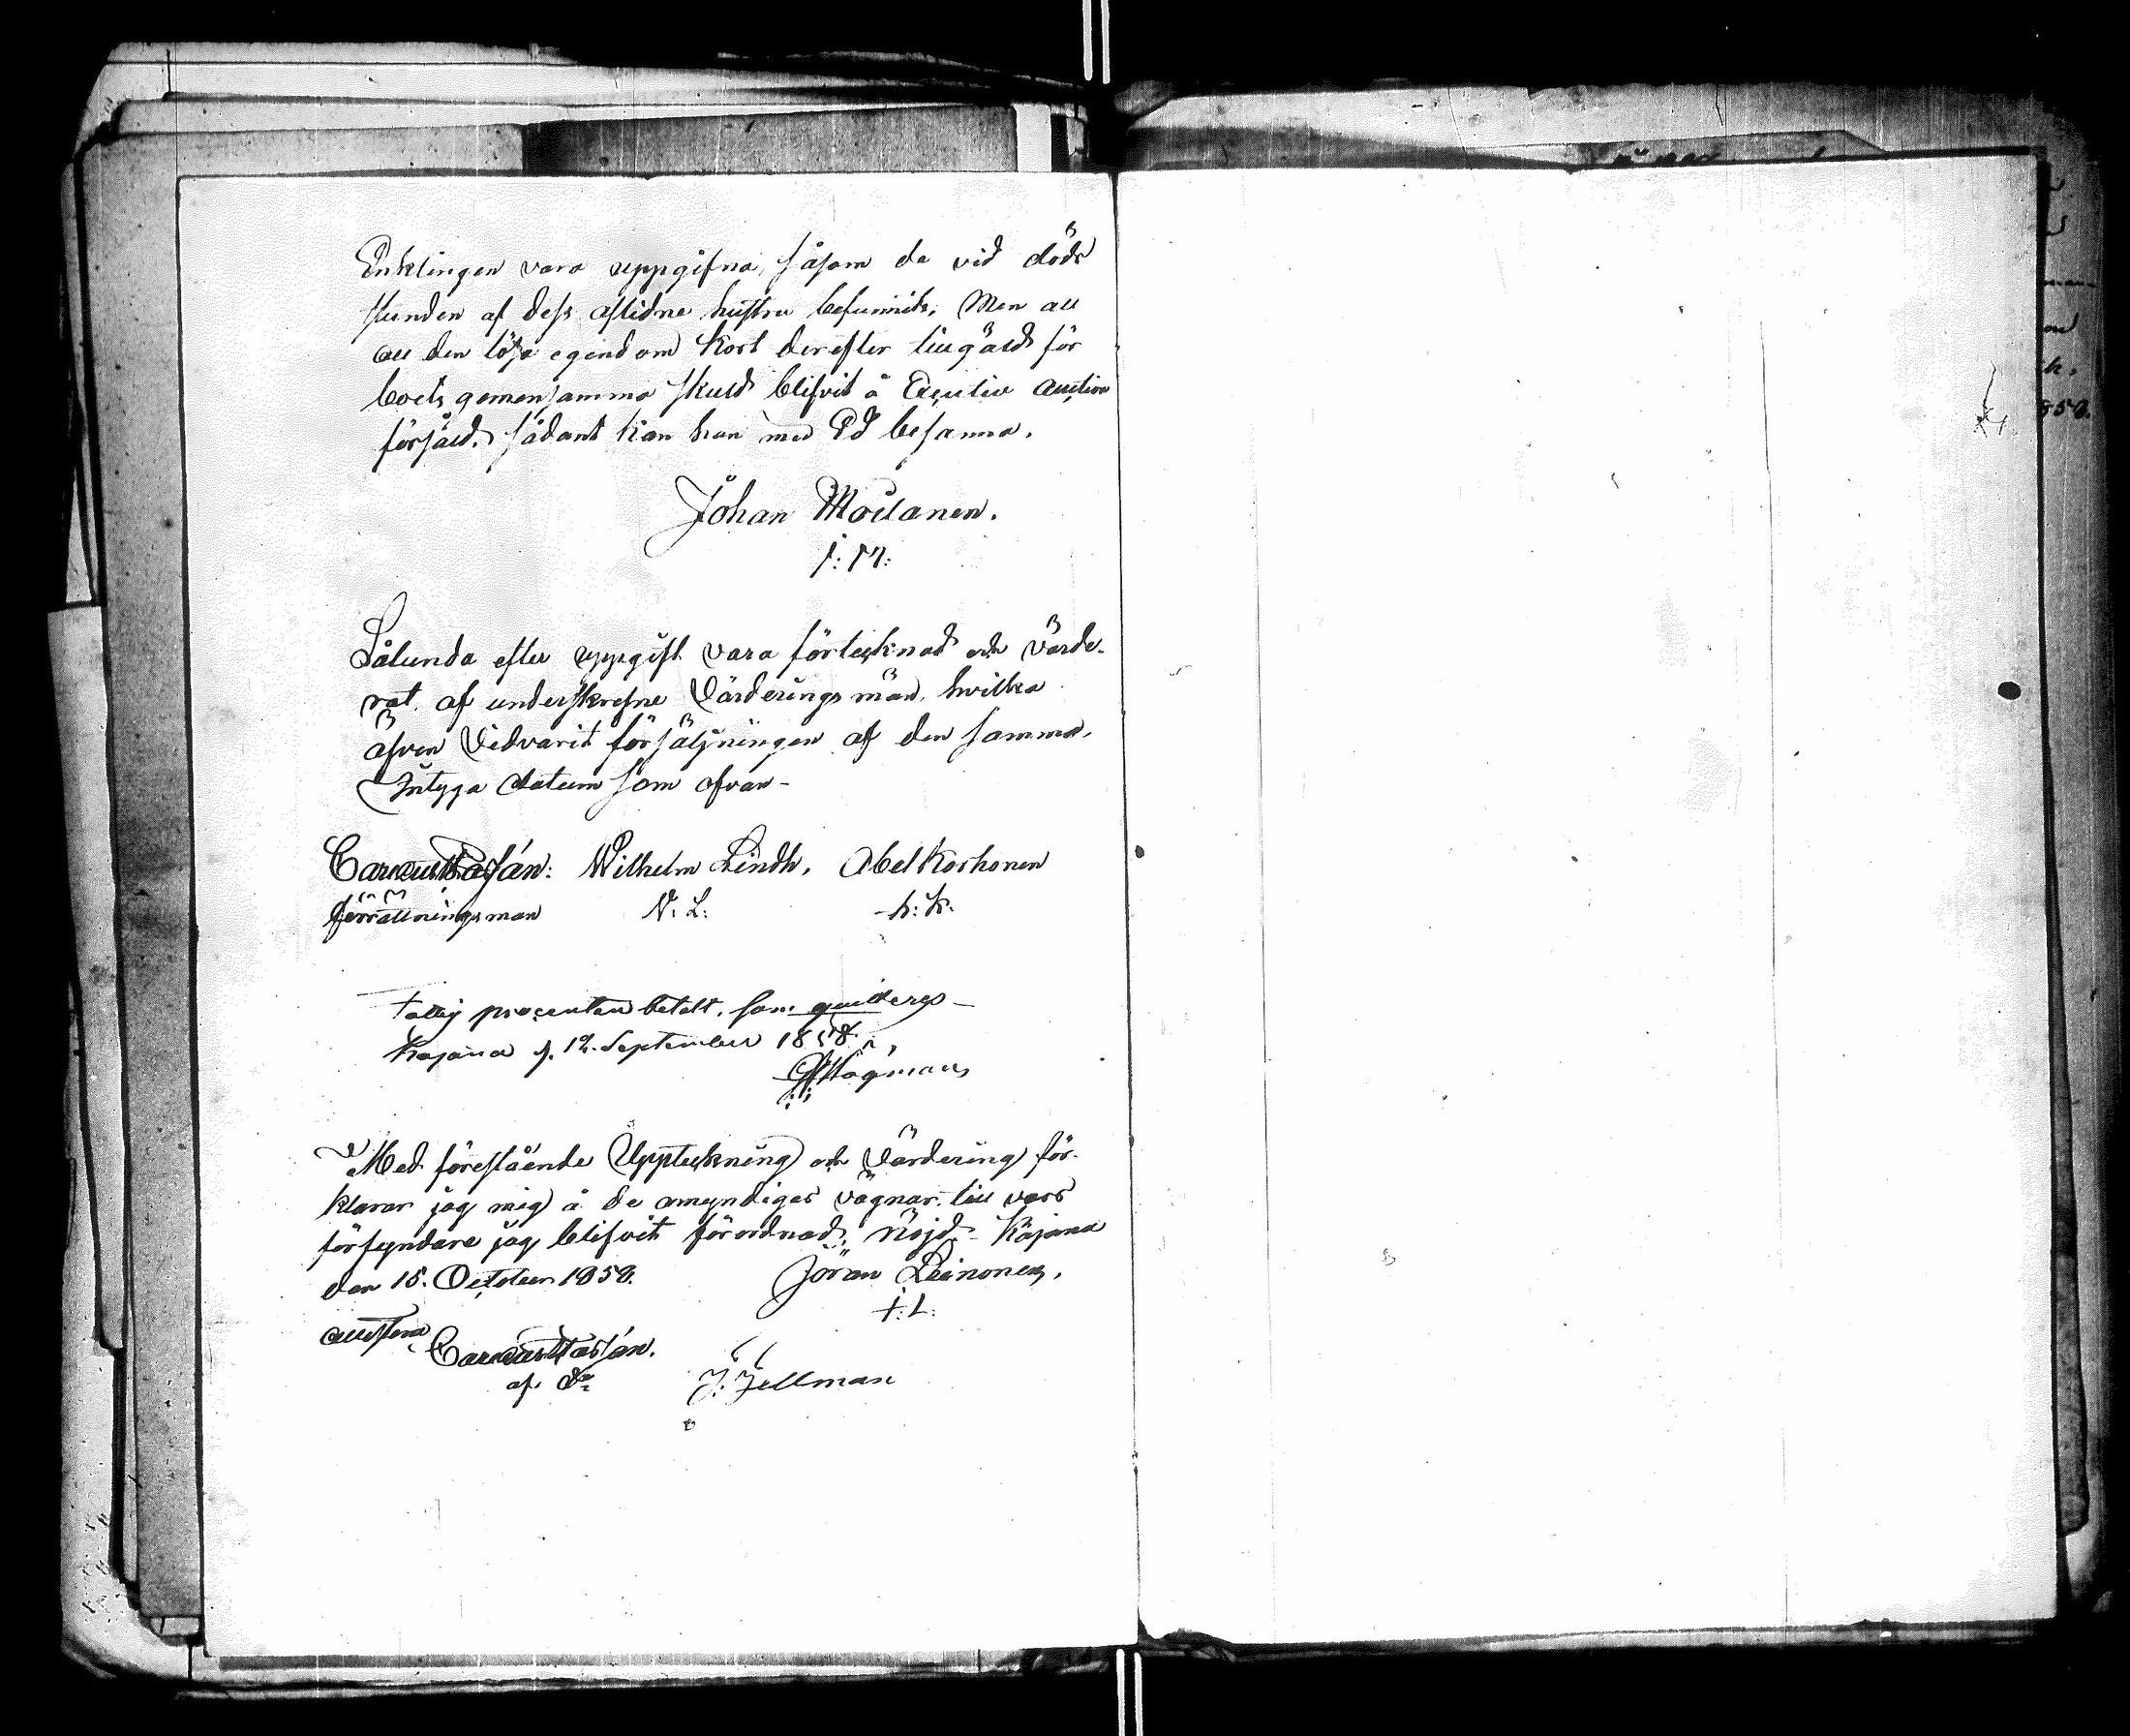 Enklingen vara uppgifna, såsom de vid döds
stunden af dess aflidne hustru befunnits; Men att
all den lösa egendom kort derefter till gäld för
boets gemensamma skuld blifvit å Auction
försåld. sådant kan han med Ed besanna.
Johan Moilanen.
Sålunda efter uppgift vara förtecknad och värde-
rat af underskrefne Värderings män, hvilka
äfven Vidvarit försäljningen af den samma,
Intyga datum som ofvan-
Wilhelm Lindh. Abel Korhonen
förrättningsman W: L: A: K:
Fattig procenten betalt, som quitteras
Kajana d. 12. September 1858.
Hägman
Med förestående Uppteckning och Värdering för-
klarar jag mig å de omyndiges vägnar, till vars
förmyndare jag blifvit förordnad, nöjd- Kajana
den 15. October 1858. Jöran Leinonen,
attestera J: L:
J: Fellman
858.